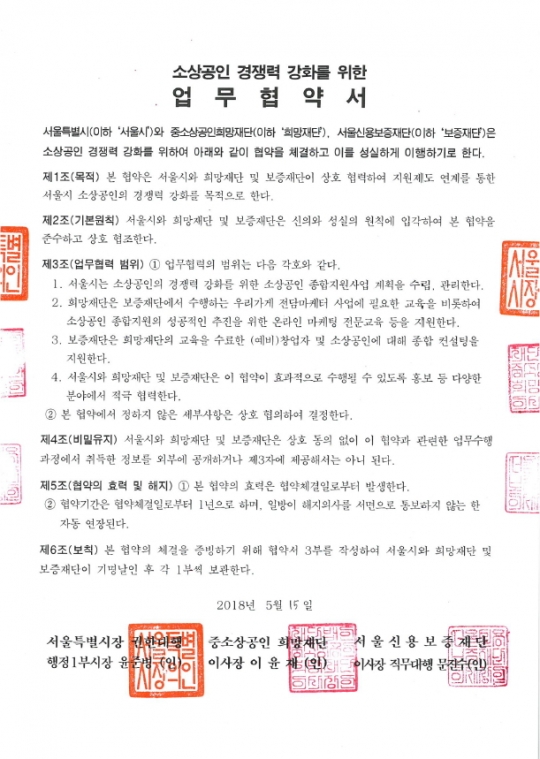 소상공인 경쟁력 강화를 위한
업 무 협 약 서
서울특별시(이하 '서울시')와 중소상공인희망재단(이하 '희망재단'), 서울신용보증재단(이하 '보증재단')은
소상공인 경쟁력 강화를 위하여 아래와 같이 협약을 체결하고 이를 성실하게 이행하기로 한다.
제1조(목적) 본 협약은 서울시와 희망재단 및 보증재단이 상호 협력하여 지원제도 연계를 통한
서울시 소상공인의 경쟁력 강화를 목적으로 한다.
제2조(기본원칙) 서울시와 희망재단 및 보증재단은 신의와 성실의 원칙에 입각하여 본 협약을
준수하고 상호 협조한다.
제3조(업무협력 범위) ① 업무협력의 범위는 다음 각호와 같다.
1. 서울시는 소상공인의 경쟁력 강화를 위한 소상공인 종합지원사업 계획을 수립, 관리한다.
2. 희망재단은 보증재단에서 수행하는 우리가게 전담마케터 사업에 필요한 교육을 비롯하여
소상공인 종합지원의 성공적인 추진을 위한 온라인 마케팅 전문교육 등을 지원한다.
3. 보증재단은 희망재단의 교육을 수료한 (예비)창업자 및 소상공인에 대해 종합 컨설팅을
지원한다.
4. 서울시와 희망재단 및 보증재단은 이 협약이 효과적으로 수행될 수 있도록 홍보 등 다양한
분야에서 적극 협력한다.
② 본 협약에서 정하지 않은 세부사항은 상호 협의하여 결정한다.
제4조(비밀유지) 서울시와 희망재단 및 보증재단은 상호 동의 없이 이 협약과 관련한 업무수행
과정에서 취득한 정보를 외부에 공개하거나 제3자에 제공해서는 아니 된다.
제5조(협약의 효력 및 해지) ① 본 협약의 효력은 협약체결일로부터 발생한다.
② 협약기간은 협약체결일로부터 1년으로 하며, 일방이 해지의사를 서면으로 통보하지 않는 한
자동 연장된다.
제6조(보칙) 본 협약의 체결을 증빙하기 위해 협약서 3부를 작성하여 서울시와 희망재단 및
보증재단이 기명날인 후 각 1부씩 보관한다.
2018년 5월 15일
서울특별시장 권한대행 중소상공인 희망재단 서울신용보증재단
행정1부시장 윤준병 (인) 이사장 이윤재 (인) 이사장 직무대행 문진수(인)